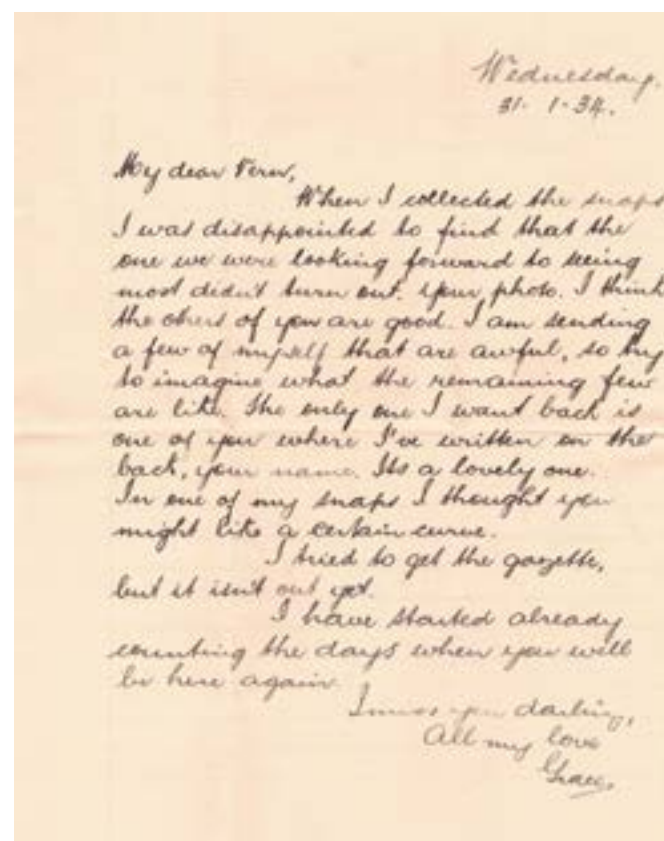 Wednesday.
31. 1. 34.
My dear Vern,
When I collected the snaps
I was disappointed to find that the
one we were looking forward to seeing
most didn't turn out. Your photo. I think
the others of you are good. I am sending
a few of myself that are awful, so try
to imagine what the remaining few
are like. The only one I want back is
one of you where I've written on the
back, your name. Its a lovely one.
In one of my snaps I thought you
might like a certain curve.
I tried to get the gazette,
but it isn't out yet.
I have started already
counting the days when you will
be here again.
I miss you darling,
All my love
Grace.